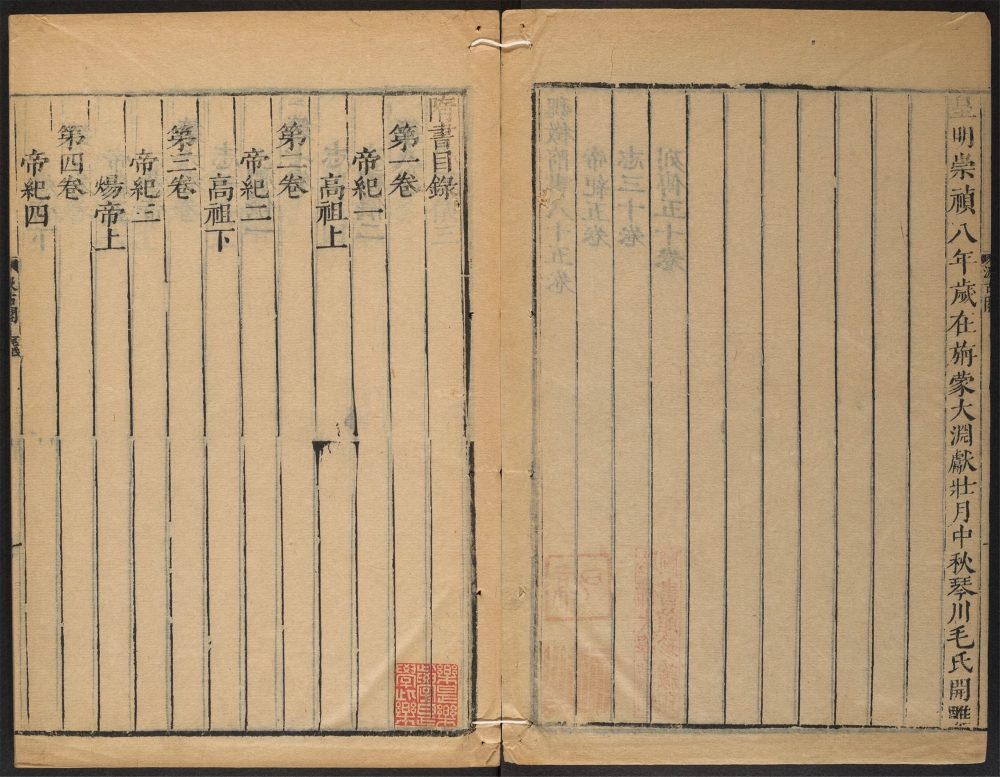 皇明崇禎八年歲在旃蒙大淵獻壯月中秋琴川毛氏開雕
隋書目錄
第一卷
帝紀一
高祖上
第二卷
帝紀二
高祖下
第三卷
帝紀三
煬帝上
第四卷
帝紀四